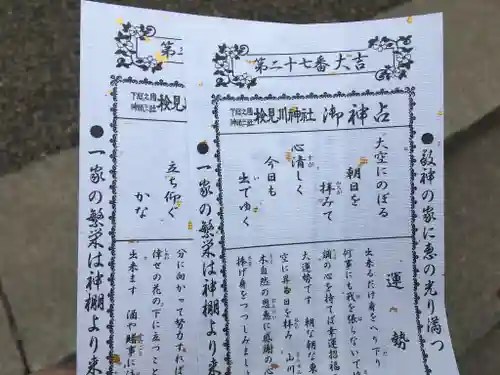 第二十七番 大吉
下総之国
神祇三社
検見川神社 御神占
敬神の家に恵の光り満つ
大空にのぼる
朝日を
拝みて
心清しく
今日も
出でゆく
運勢
出来るだけ身をへり下り
何事にも我を張らないで
鏡の心を持てば幸運招福
大運勢です 朝な朝な東
空に昇る日を拝み 山川
木自然の恩恵に感謝の
捧げ身をつつしみまし
一家の繁栄は神棚より来
第二
下総之国
神祇三社
検見
立ち仰ぐ
かな
分に向かって努力すれば
倖せの花の下に立つこと
出来ます 酒や賭事に
一家の繁栄は神棚より来